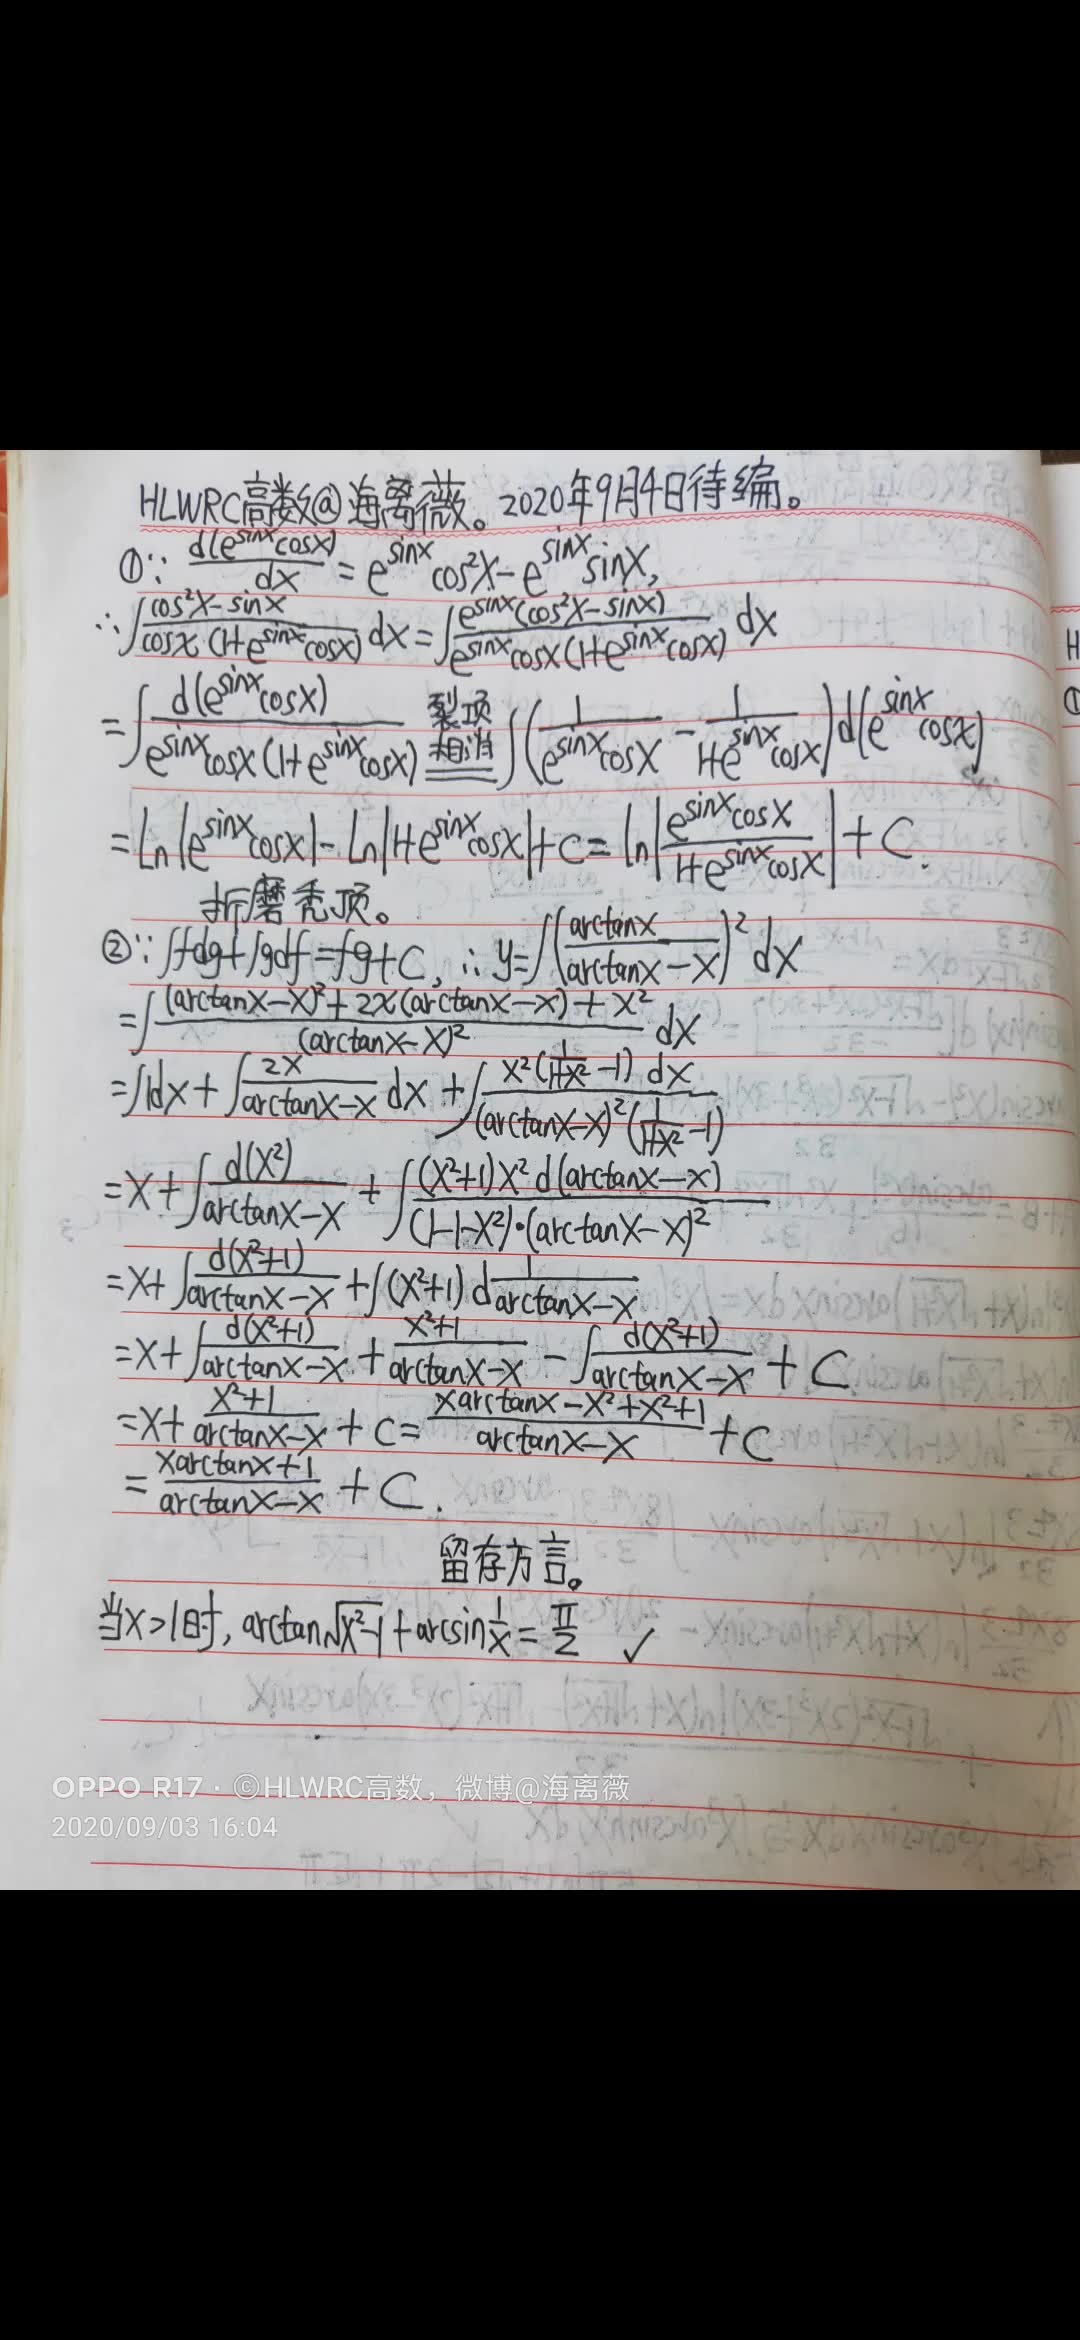 HLWRC高数@海离薇。2020年9月4日待编。
①∵ d(e^sinx cosx)/dx = e^sinx cos²x - e^sinx sinx,
∴ ∫ (cos²x - sinx)/(cosx (1+e^sinx cosx)) dx = ∫ e^sinx (cos²x - sinx)/(e^sinx cosx (1+e^sinx cosx)) dx
= ∫ d(e^sinx cosx)/(e^sinx cosx (1+e^sinx cosx)) 裂项相消 ∫ (1/(e^sinx cosx) - 1/(1+e^sinx cosx)) d(e^sinx cosx)
= Ln|e^sinx cosx| - Ln|1+e^sinx cosx| + C = ln|e^sinx cosx/(1+e^sinx cosx)| + C.
折磨秃顶。
②∵ ∫fdg+∫gdf=fg+C, ∴ y=∫(arctanx/(arctanx-x))² dx
= ∫ ((arctanx-x)²+2x(arctanx-x)+x²)/(arctanx-x)² dx
= ∫1dx + ∫ 2x/(arctanx-x) dx + ∫ x²(1/(1+x²) -1) dx/((arctanx-x)²(1/(1+x²) -1))
= x + ∫ d(x²)/(arctanx-x) + ∫ (x²+1)x² d(arctanx-x)/((1-1-x²)·(arctanx-x)²)
= x + ∫ d(x²+1)/(arctanx-x) + ∫(x²+1) d 1/(arctanx-x)
= x + ∫ d(x²+1)/(arctanx-x) + (x²+1)/(arctanx-x) - ∫ d(x²+1)/(arctanx-x) + C
= x + (x²+1)/(arctanx-x) + C = (xarctanx-x²+x²+1)/(arctanx-x) + C
= (xarctanx+1)/(arctanx-x) + C.
留存方言。
当x>1时, arctan√(x²-1) + arcsin 1/x = π/2 ✓
OPPO R17 · ©HLWRC高数，微博@海离薇
2020/09/03 16:04